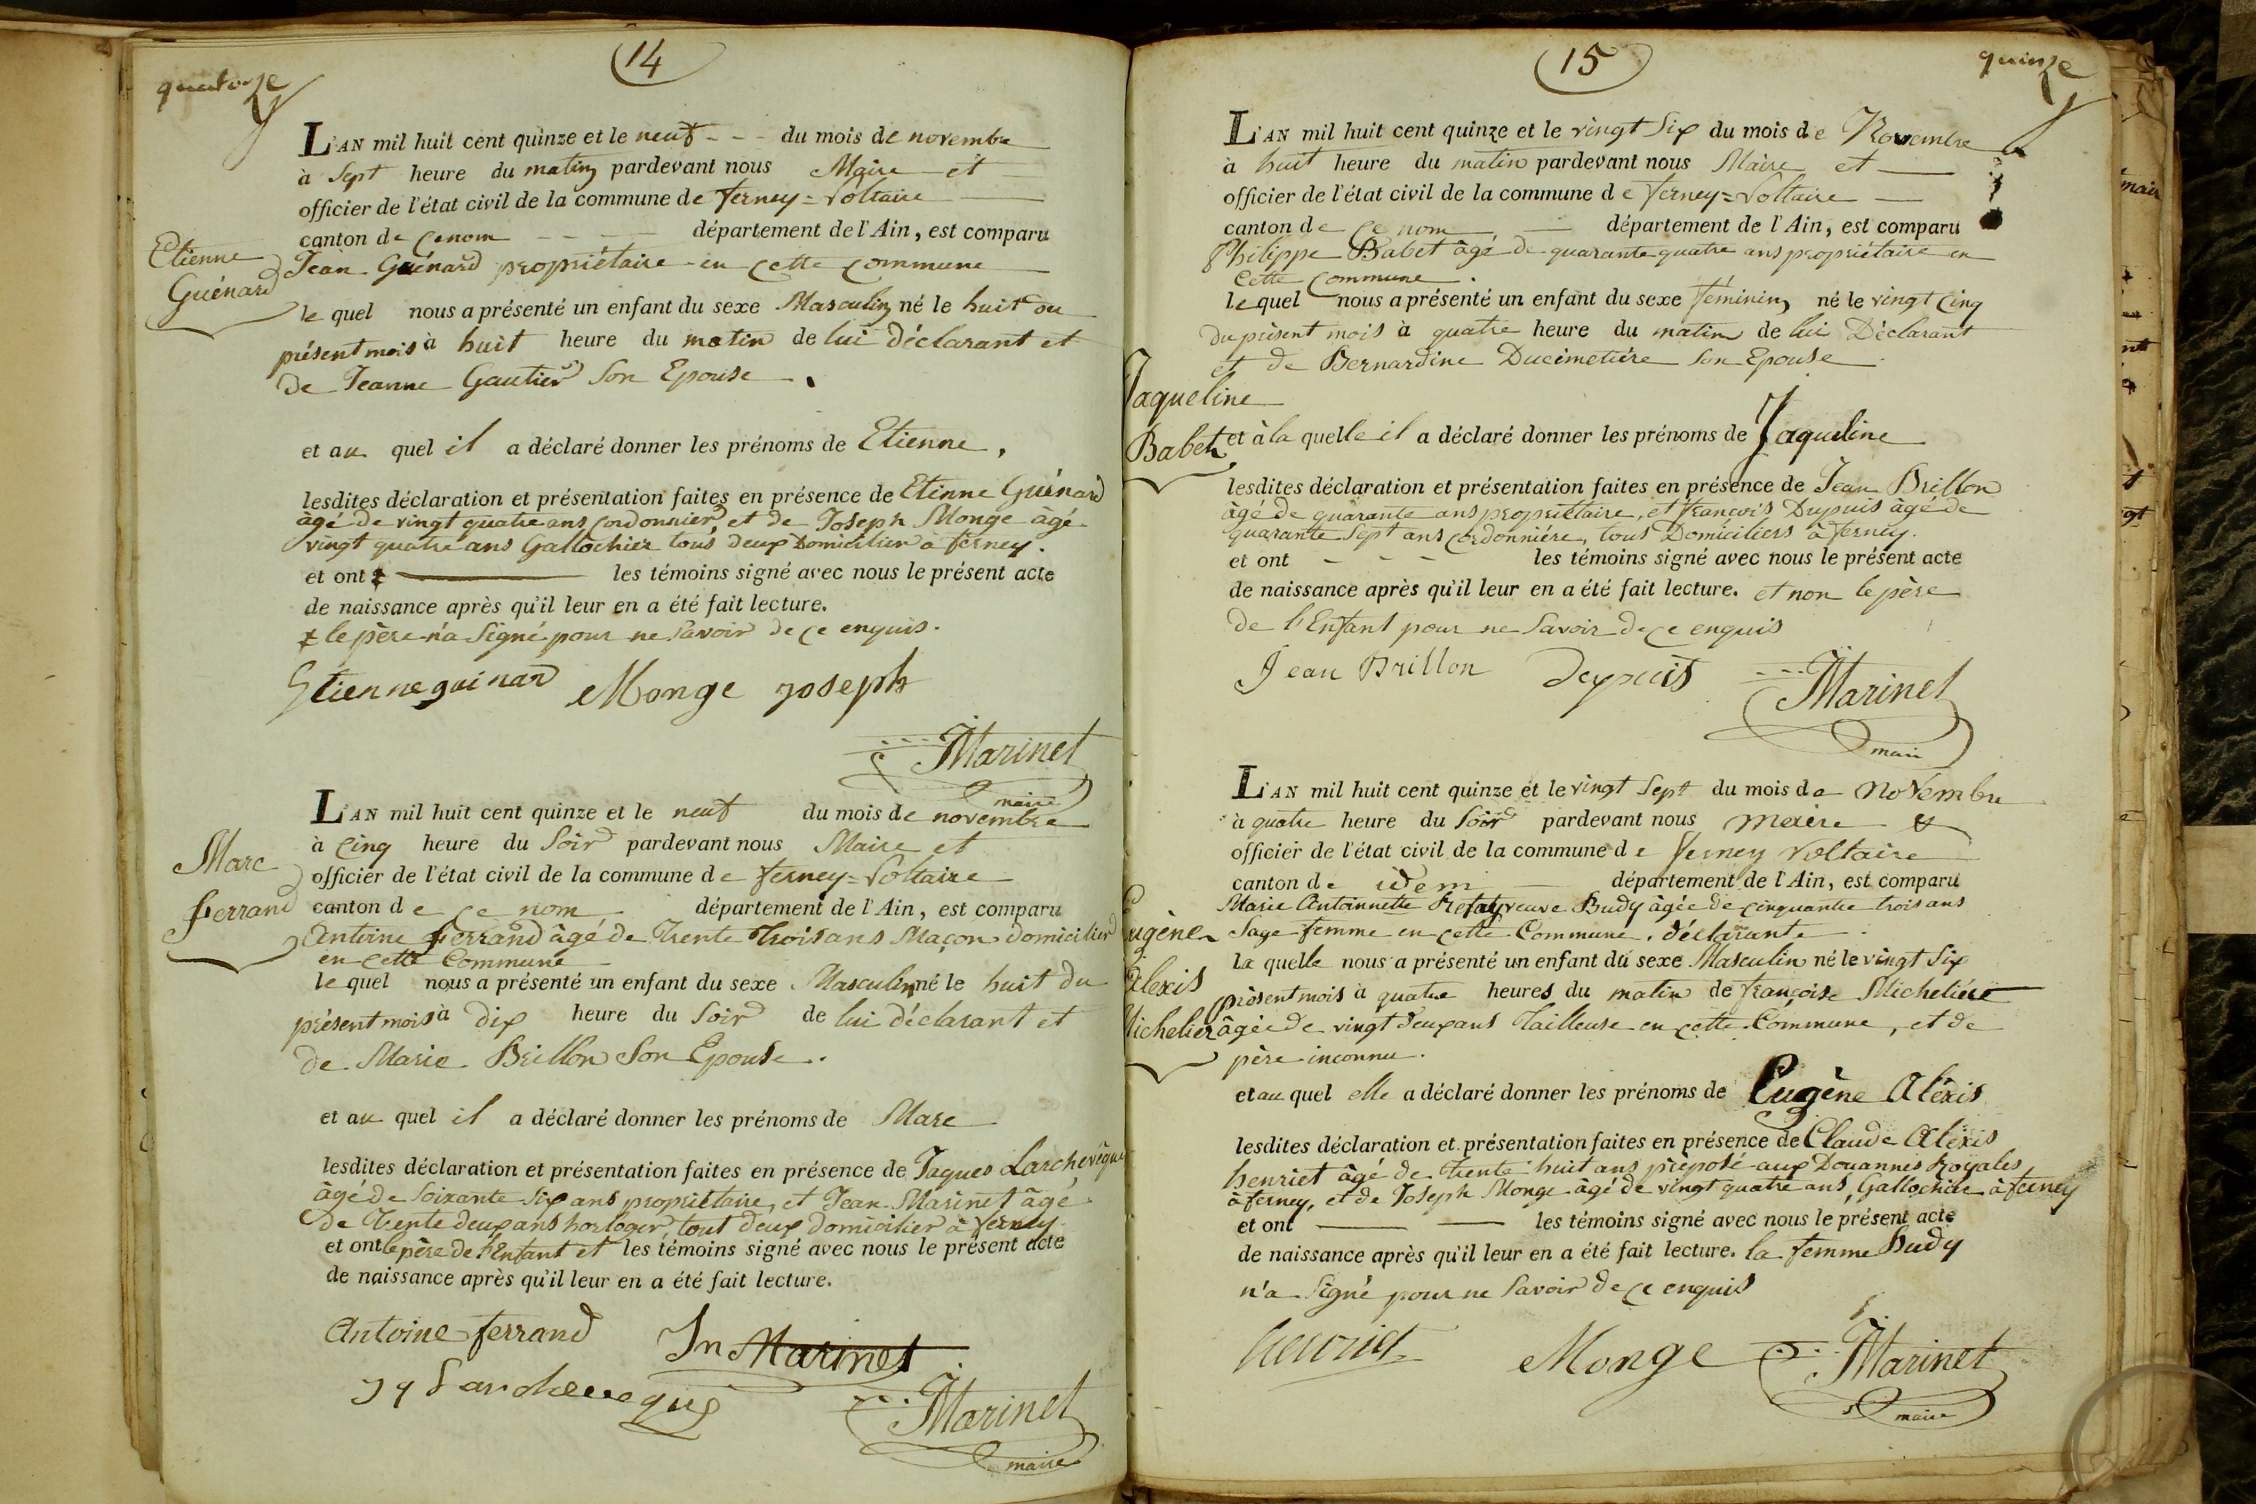 quatorze
14
L'AN mil huit cent quinze et le neuf - - - du mois de novembre
à Sept heure du matin pardevant nous Maire et
officier de l'état civil de la commune de ferney=Voltaire
canton de ce nom - - - département de l'Ain, est comparu
Etienne
Guénard
Jean Guénard propriétaire en cette commune
le quel nous a présenté un enfant du sexe Masculin né le huit du
présent mois à huit heure du matin de lui déclarant et
de Jeanne Gautier Son Epouse.
et au quel il a déclaré donner les prénoms de Etienne,
lesdites déclaration et présentation faites en présence de Etinne Guénard
âgé de vingt quatre ans Cordonnier, et de Joseph Monge âgé
vingt quatre ans Gallochier tous deux Domicilier à ferney.
et ont ‡ les témoins signé avec nous le présent acte
de naissance après qu'il leur en a été fait lecture.
‡ le père n'a Signé pour ne Savoir de ce enquis.
Etienne guinard Monge joseph
JMarinet
maire
L'AN mil huit cent quinze et le neuf du mois de novembre
à Cinq heure du Soir pardevant nous Maire et
officier de l'état civil de la commune de ferney=Voltaire
canton de ce nom département de l'Ain, est comparu
Marc
ferrand
Antoine ferrand âgé de Trente Trois ans Maçon domicilier
en cette Commune
le quel nous a présenté un enfant du sexe Masculin né le huit du
présent mois à dix heure du Soir de lui déclarant et
de Marie Brillon Son Epouse.
et au quel il a déclaré donner les prénoms de Marc
lesdites déclaration et présentation faites en présence de Jaques Larchevêque
âgé de Soixante Six ans propriétaire, et Jean Marinet âgé
de Trente deux ans horloger, tout deux domicilier à ferney.
et ont le père de l'Enfant et les témoins signé avec nous le présent acte
de naissance après qu'il leur en a été fait lecture.
Antoine ferrand Jn Marinet
Jq Larcheveque
JMarinet
maire
15
quinze
L'AN mil huit cent quinze et le vingt Six du mois de Novembre
à huit heure du matin pardevant nous Maire et
officier de l'état civil de la commune de ferney=Voltaire
canton de ce nom, département de l'Ain, est comparu
Philippe Babet âgé de quarante quatre ans propriétaire en
Cette Commune.
le quel nous a présenté un enfant du sexe féminin né le vingt Cinq
du présent mois à quatre heure du matin de lui Déclarant
et de Bernardine Ducimetière Son Epouse.
Jaqueline
Babet
et à la quelle il a déclaré donner les prénoms de Jaqueline
lesdites déclaration et présentation faites en présence de Jean Brillon
âgé de quarante ans propriétaire, et françois Dupuis âgé de
quarante Sept ans Cordonniére, tous Domiciliers à ferney.
et ont - - - les témoins signé avec nous le présent acte
de naissance après qu'il leur en a été fait lecture. et non le père
de l'Enfant pour ne Savoir de ce enquis
Jean Brillon Depuis JMarinet
maire
L'AN mil huit cent quinze et le vingt Sept du mois de Novembre
à quatre heure du Soir pardevant nous maire &
officier de l'état civil de la commune de ferney Voltaire
canton de idem département de l'Ain, est comparu
Marie Antoinnette veuve Budy âgée de cinquante trois ans
Sage femme en cette Commune, déclarante.
Eugène
Alexis
Michelier
la quelle nous a présenté un enfant du sexe Masculin né le vingt Six
présent mois à quatre heures du matin de françoise Micheliére
âgée de vingt deux ans Tailleuse en cette Commune, et de
père inconnu.
et au quel elle a déclaré donner les prénoms de Eugène Aléxis
lesdites déclaration et présentation faites en présence de Claude Aléxis
henriet âgé de Trente huit ans préposé aux Douannes Royales
à ferney, et de Joseph Monge âgé de vingt quatre ans, Gallochier à ferney
et ont les témoins signé avec nous le présent acte
de naissance après qu'il leur en a été fait lecture. la femme Budy
n'a Signé pour ne Savoir de ce enquis
henriet Monge JMarinet
maire